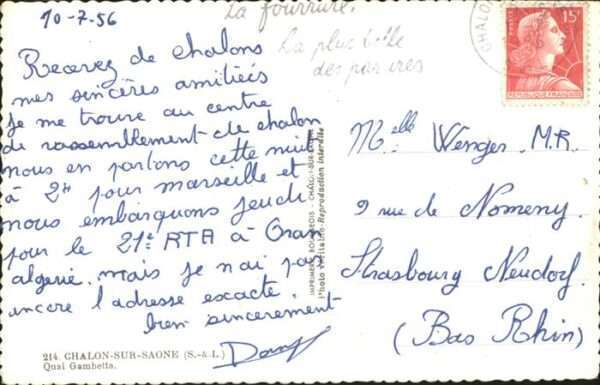 10-7-56
Recevez de chalons
mes sincères amitiées
je me trouve au centre
de rassemblement de chalon
nous en partons cette nuit
à 2H pour marseille et
nous embarquons jeudi
pour le 21e RTA à Oran
algerie. mais je n'ai pas
encore l'adresse exacte.
bien sincerement
214. CHALON-SUR-SAONE (S.-&-L.)
Quai Gambetta.
La fourrure.
La plus belle
des parures
IMPRIMERIE BOURGEOIS - CHALON-SUR-SAONE
Photo Véritable-Reproduction interdite
CHALON
POSTES
15F
REPUBLIQUE FRANÇAISE
Melle Wenger M.R.
9 rue de Nomeny
Strasbourg Neudorf
(Bas Rhin)